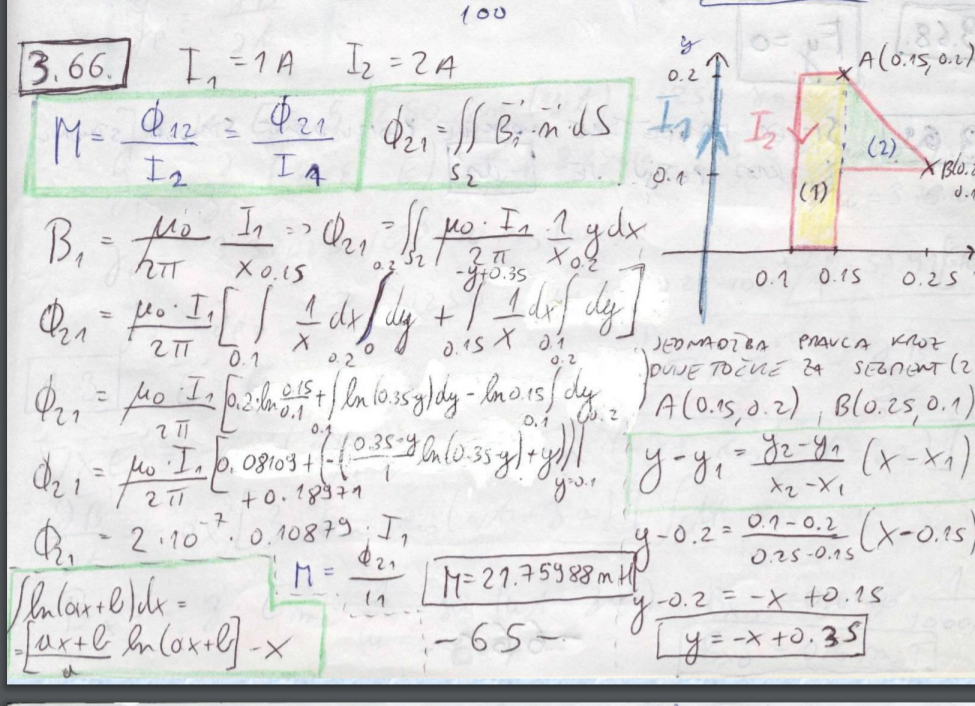 100
3.66. I₁ = 1A I₂ = 2A
M = Φ₁₂/I₂ = Φ₂₁/I₁
Φ₂₁ = ∬_{S₂} B⃗₁·n⃗·dS
B₁ = μ₀/2π · I₁/x => Φ₂₁ = ∬_{S₂} μ₀·I₁/2π · 1/x y dx
Φ₂₁ = μ₀·I₁/2π [∫_{0.1}^{0.15} 1/x dx ∫_{0}^{0.2} dy + ∫_{0.15}^{-y+0.35} 1/x dx ∫_{0.1}^{0.2} dy]
Φ₂₁ = μ₀·I₁/2π [0.2·ln 0.15/0.1 + ∫_{0.1}^{0.2} ln(0.35-y)dy - ln0.15 ∫_{0.1}^{0.2} dy]
Φ₂₁ = μ₀·I₁/2π [0.08109 + (-(0.35-y/1 ln(0.35-y)+y))|_{y=0.1}^{0.2}
+0.18971
Φ₂₁ = 2·10⁻⁷·0.10879·I₁
M = Φ₂₁/I₁
M = 21.75988 nH
∫ln(ax+b)dx =
= [ax+b/a ln(ax+b)] - x
-65-
y
0.2
A(0.15, 0.2)
I₁
I₂
(2)
0.1
B(0.2
0.1
(1)
0.1 0.15 0.25
JEDNADŽBA PRAVCA KROZ
DVIJE TOČKE ZA SEGMENT (2
A(0.15, 0.2), B(0.25, 0.1)
y-y₁ = y₂-y₁/x₂-x₁ (x-x₁)
y-0.2 = 0.1-0.2/0.25-0.15 (x-0.15)
y-0.2 = -x+0.15
y = -x+0.35